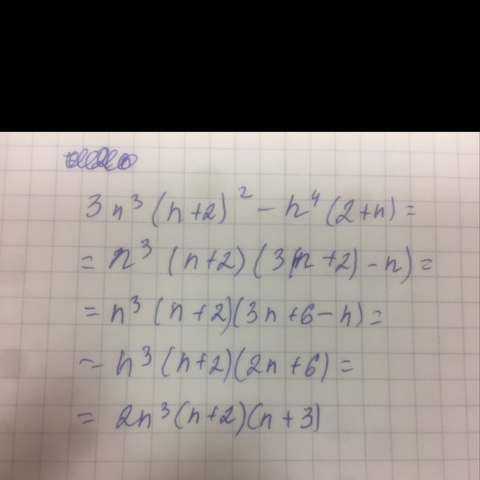 3n³(n+2)² - n⁴(2+n) =
= n³(n+2)(3(n+2)-n) =
= n³(n+2)(3n+6-n) =
= n³(n+2)(2n+6) =
= 2n³(n+2)(n+3)